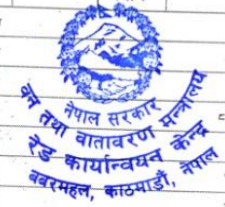 नेपाल सरकार
वन तथा वातावरण मन्त्रालय
रेड कार्यान्वयन केन्द्र
ववरमहल, काठमाडौं, नेपाल